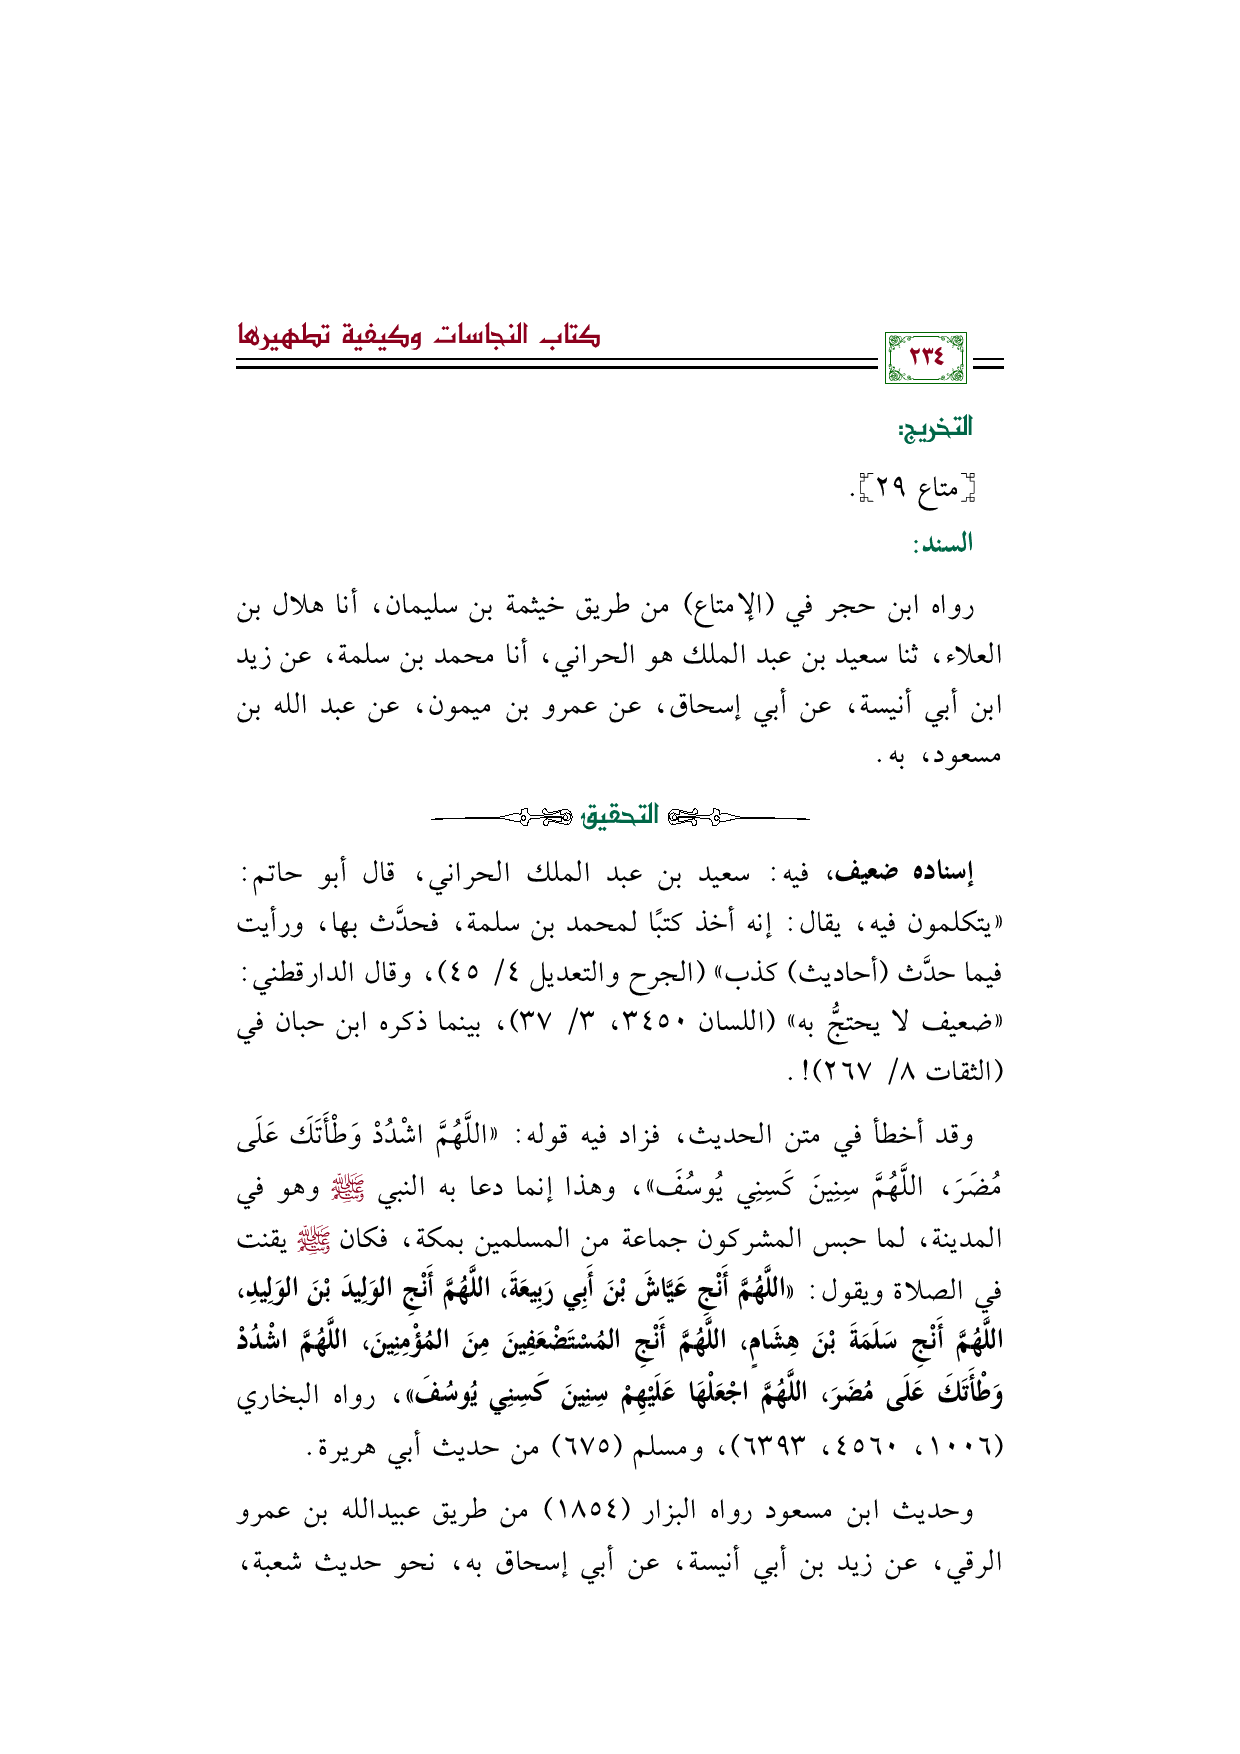 كتاب النجاسات وكيفية تطهيرها
٢٣٤
التخريج:
[متاع ٢٩].
السند:
رواه ابن حجر في (الإمتاع) من طريق خيثمة بن سليمان، أنا هلال بن
العلاء، ثنا سعيد بن عبد الملك هو الحراني، أنا محمد بن سلمة، عن زيد
ابن أبي أنيسة، عن أبي إسحاق، عن عمرو بن ميمون، عن عبد الله بن
مسعود، به.
التحقيق
إسناده ضعيف، فيه: سعيد بن عبد الملك الحراني، قال أبو حاتم:
«يتكلمون فيه، يقال: إنه أخذ كتبًا لمحمد بن سلمة، فحدَّث بها، ورأيت
فيما حدَّث (أحاديث) كذب» (الجرح والتعديل ٤/ ٤٥)، وقال الدارقطني:
«ضعيف لا يحتجُّ به» (اللسان ٣٤٥٠، ٣/ ٣٧)، بينما ذكره ابن حبان في
(الثقات ٨/ ٢٦٧)!.
وقد أخطأ في متن الحديث، فزاد فيه قوله: «اللَّهُمَّ اشْدُدْ وَطْأَتَكَ عَلَى
مُضَرَ، اللَّهُمَّ سِنِينَ كَسِنِي يُوسُفَ»، وهذا إنما دعا به النبي ﷺ وهو في
المدينة، لما حبس المشركون جماعة من المسلمين بمكة، فكان ﷺ يقنت
في الصلاة ويقول: «اللَّهُمَّ أَنْجِ عَيَّاشَ بْنَ أَبِي رَبِيعَةَ، اللَّهُمَّ أَنْجِ الوَلِيدَ بْنَ الوَلِيدِ،
اللَّهُمَّ أَنْجِ سَلَمَةَ بْنَ هِشَامٍ، اللَّهُمَّ أَنْجِ المُسْتَضْعَفِينَ مِنَ المُؤْمِنِينَ، اللَّهُمَّ اشْدُدْ
وَطْأَتَكَ عَلَى مُضَرَ، اللَّهُمَّ اجْعَلْهَا عَلَيْهِمْ سِنِينَ كَسِنِي يُوسُفَ»، رواه البخاري
(١٠٠٦، ٤٥٦٠، ٦٣٩٣)، ومسلم (٦٧٥) من حديث أبي هريرة.
وحديث ابن مسعود رواه البزار (١٨٥٤) من طريق عبيدالله بن عمرو
الرقي، عن زيد بن أبي أنيسة، عن أبي إسحاق به، نحو حديث شعبة،